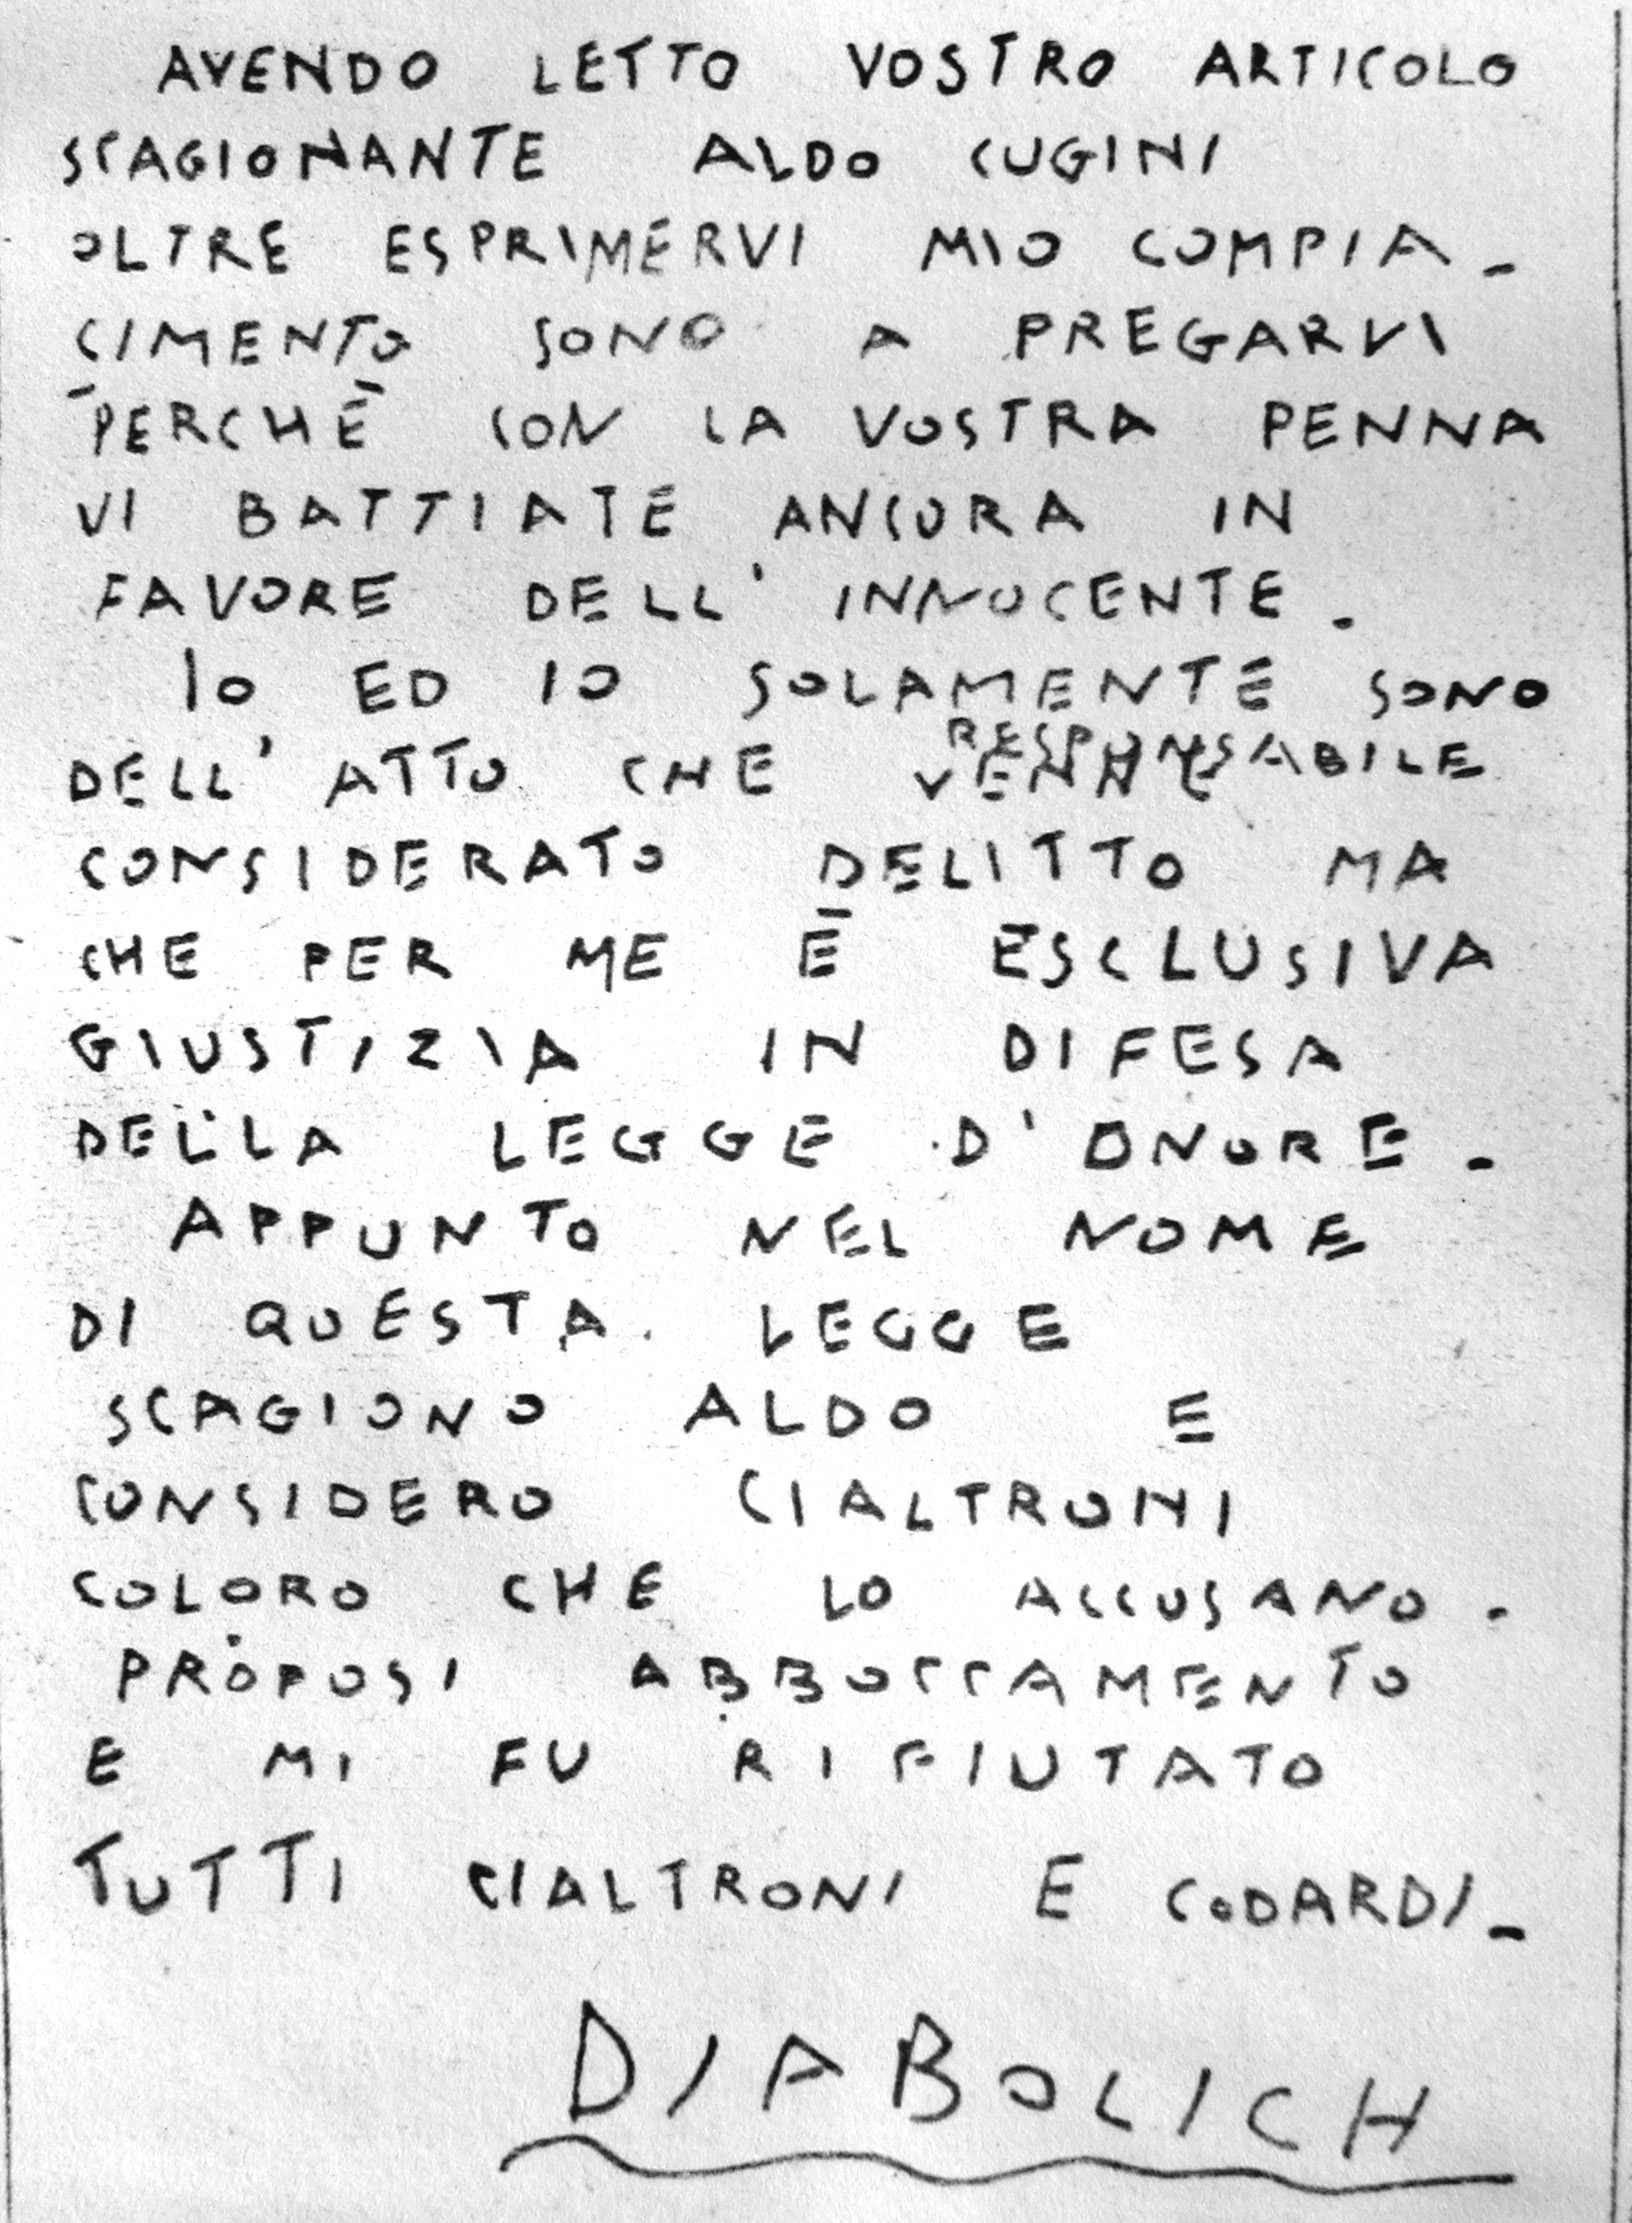 AVENDO LETTO VOSTRO ARTICOLO
SCAGIONANTE ALDO CUGINI
OLTRE ESPRIMERVI MIO COMPIA-
CIMENTO SONO A PREGARVI
PERCHÈ CON LA VOSTRA PENNA
VI BATTIATE ANCORA IN
FAVORE DELL'INNOCENTE.
IO ED IO SOLAMENTE SONO
RESPONSABILE
DELL'ATTO CHE VENNE
CONSIDERATO DELITTO MA
CHE PER ME È ESCLUSIVA
GIUSTIZIA IN DIFESA
DELLA LEGGE D'ONORE.
APPUNTO NEL NOME
DI QUESTA LEGGE
SCAGIONO ALDO E
CONSIDERO CIALTRONI
COLORO CHE LO ACCUSANO.
PROPOSI ABBOCCAMENTO
E MI FU RIFIUTATO
TUTTI CIALTRONI E CODARDI-
DIABOLICH